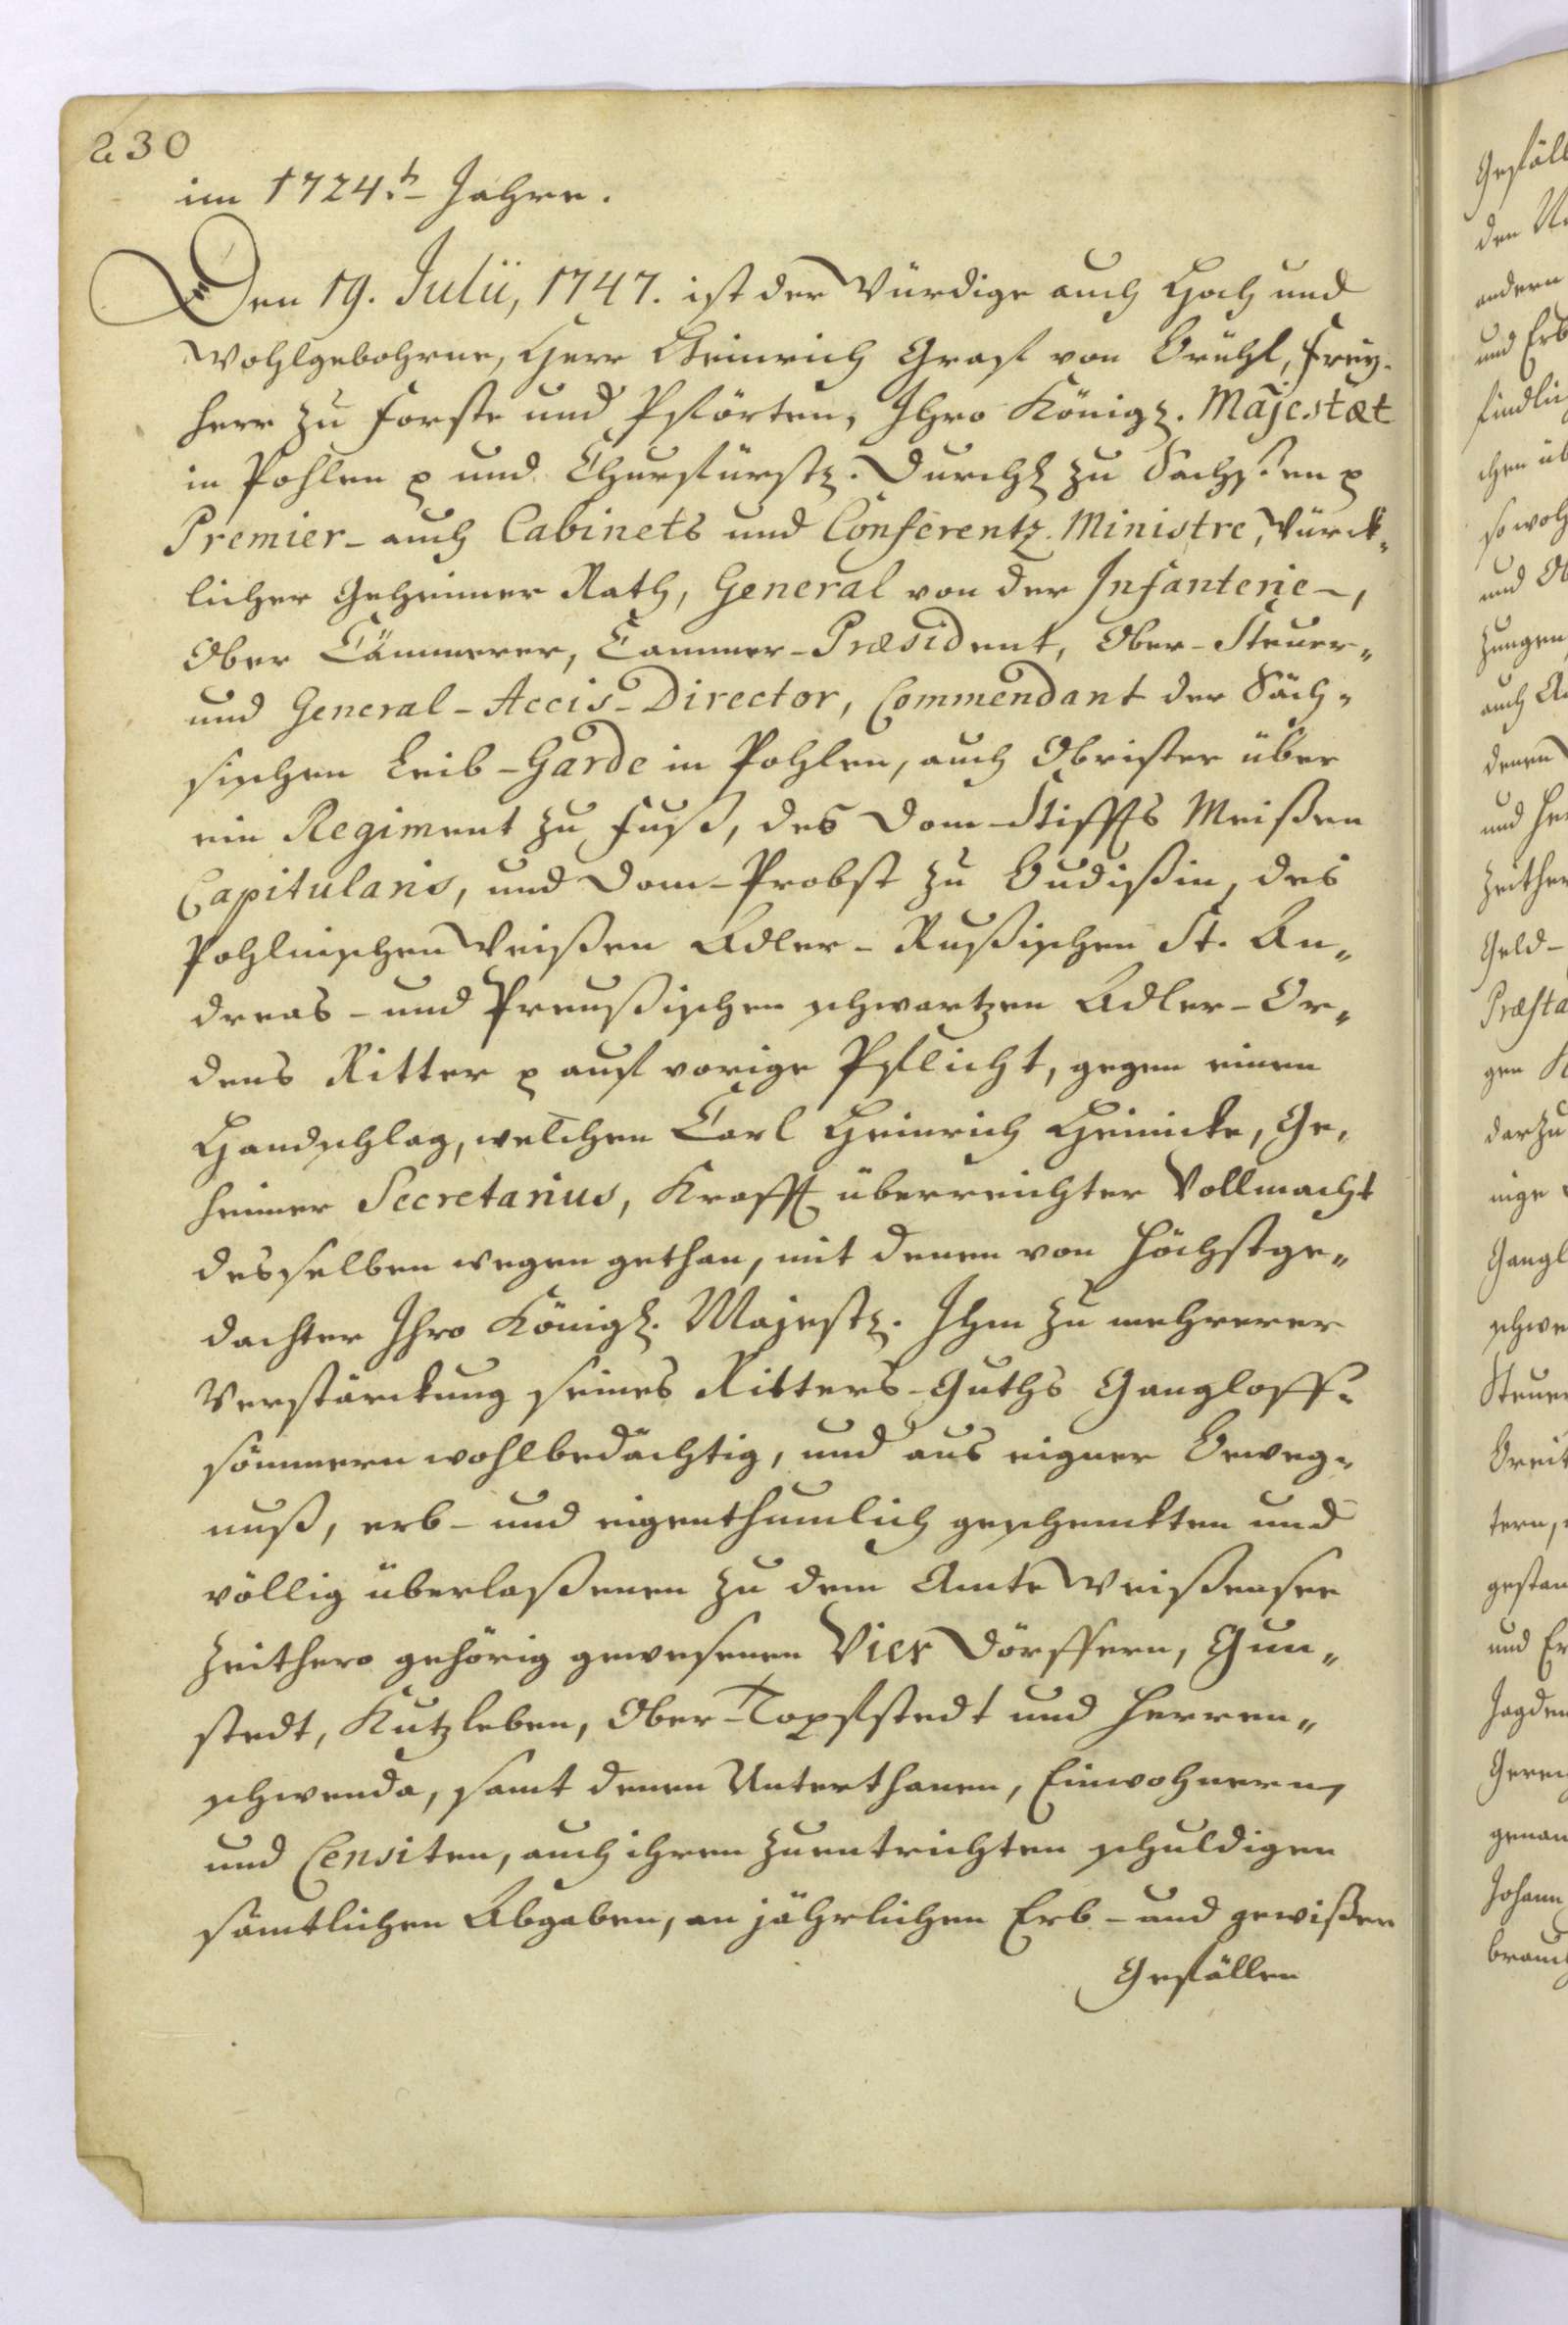 230
im 1724.t- Jahre.
Den 19. Julii, 1747. ist der Würdige auch Hoch und
Wohlgebohrne, Herr Heinrich Graf von Brühl, Frey-
herr zu Forste und Pförten, Ihro Königl. Majestæt
in Pohlen p und Churfürstl. Durchl zu Sachßen p
Premier- auch Cabinets und Conferentz-Ministre, Würck-
licher Geheimer Rath, General von der Infanterie-,
Ober Cämmerer, Cammer-Præsident, Ober-Steuer-
und General-Accis-Director, Commendant der Säch-
sischen Leib-Garde in Pohlen, auch Obrister über
ein Regiment zu Fuß, des Dom-Stiffts Meißen
Capitularis, und Dom-Probst zu Budißin, des
Pohlnischen Weißen Adler- Rußischen St. An-
dreas- und Preußischen schwartzen Adler-Or-
dens Ritter p auf vorige Pflicht, gegen einen
Handschlag, welchen Carl Heinrich Heinicke, Ge-
heimer Secretarius, Krafft überreichter Vollmacht
desselben wegen gethan, mit denen von Höchstge-
dachter Ihro Königl. Majestl. Ihm zu mehrerer
Verstärckung seines Ritters-Guths Gangloff-
sömmern wohlbedächtig, und aus eigner Beweg-
nuß, erb- und eigenthumlich geschenckten und
völlig überlaßenen zu dem Amte Weißensee
zeithero gehörig gewesenen Vier Dörffern, Gun-
stedt, Kutzleben, Ober-Topfstedt und Herren-
schwenda, samt denen Unterthanen, Einwohnern,
und Censiten, auch ihren zuentrichten schuldigen
sämtlichen Abgaben, an jährlichen Erb- und gewißen
Gefällen
Gefäll
den
andern
und Erb
findlic
chen üb
sowoh
und Ob
zungen
auch
denen
und He
zeither
Geld-
Præsta
gen
darzu
nige
Gangl
schwe
Steuer
Breit
tern,
gestan
und Er
Jagden
Geric
genan
Johann
brauch